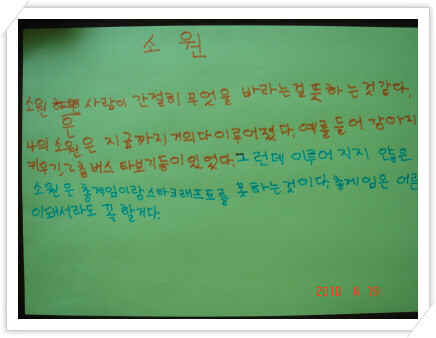 소원
소원 하면 사람이 간절히 무엇을 바라는걸 뜻하는것같다.
은
나의 소원은 지금까지 거의다 이루어졌다. 예를들어 강아지
키우기, 2층버스 타보기등이 있었다. 그런데 이루어 지지 않은
소원은 총게임이랑 스타크래프트를 못하는것이다. 총게임은 어른
이돼서라도 꼭 할거다.
2010